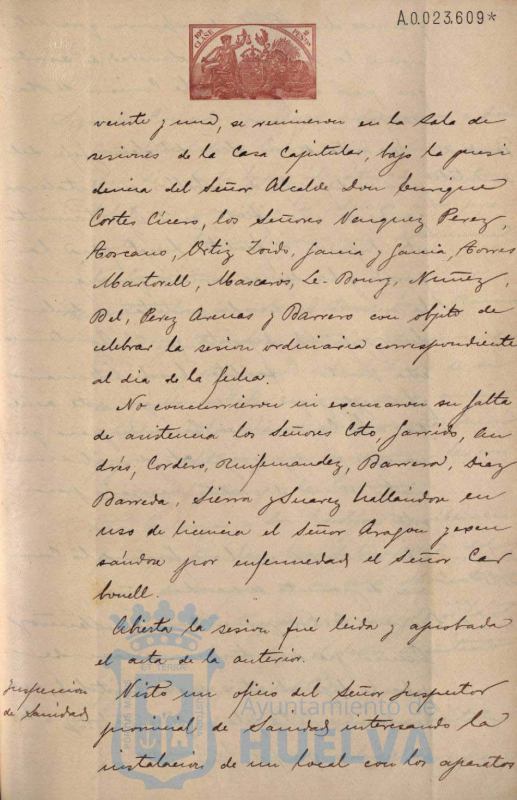 A.0.023.609*
10ª CLASE
PESETAS
veinte y una, se reunieron en la Sala de
sesiones de la Casa Capitular, bajo la presi
dencia del Señor Alcalde Don Enrique
Cortes Cícero, los Señores Vazquez Perez,
Torcano, Ortiz Toido, Garcia y Garcia, Torres
Martorell, Mascarós, Le-Bourg, Nuñez,
Bel, Perez Arenas y Barrero con objeto de
celebrar la sesion ordinaria correspondiente
al dia de la fecha.
No concurrieron ni excusaron su falta
de asistencia los Señores Coto Garrido, An
drés, Cordero, Ruifernandez, Barrera, Diaz
Barreda, Sierra y Suarez hallándose en
uso de licencia el Señor Aragon y excu
sándose por enfermedad el Señor Car
bonell.
Abierta la sesion fué leida y aprobada
el acta de la anterior.
Inspeccion
de Sanidad
Visto un oficio del Señor Inspector
provincial de Sanidad interesando la
instalacion de un local con los aparatos
Ayuntamiento de
HUELVA